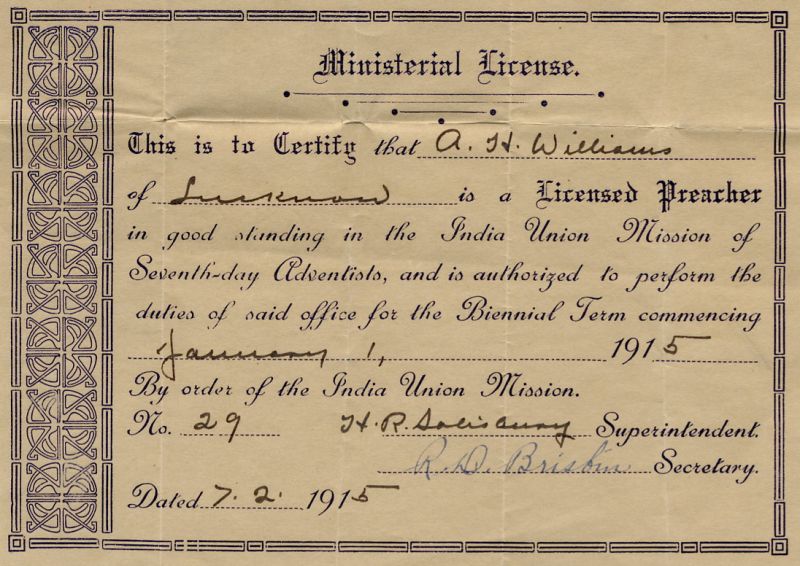 Ministerial License.
This is to Certify that A. H. Williams
of Lucknow is a Licensed Preacher
in good standing in the India Union Mission of
Seventh-day Adventists, and is authorized to perform the
duties of said office for the Biennial Term commencing
January 1, 1915
By order of the India Union Mission.
No. 29 H. R. Salisbury Superintendent.
R. D. Brisbin Secretary.
Dated 7. 2. 1915